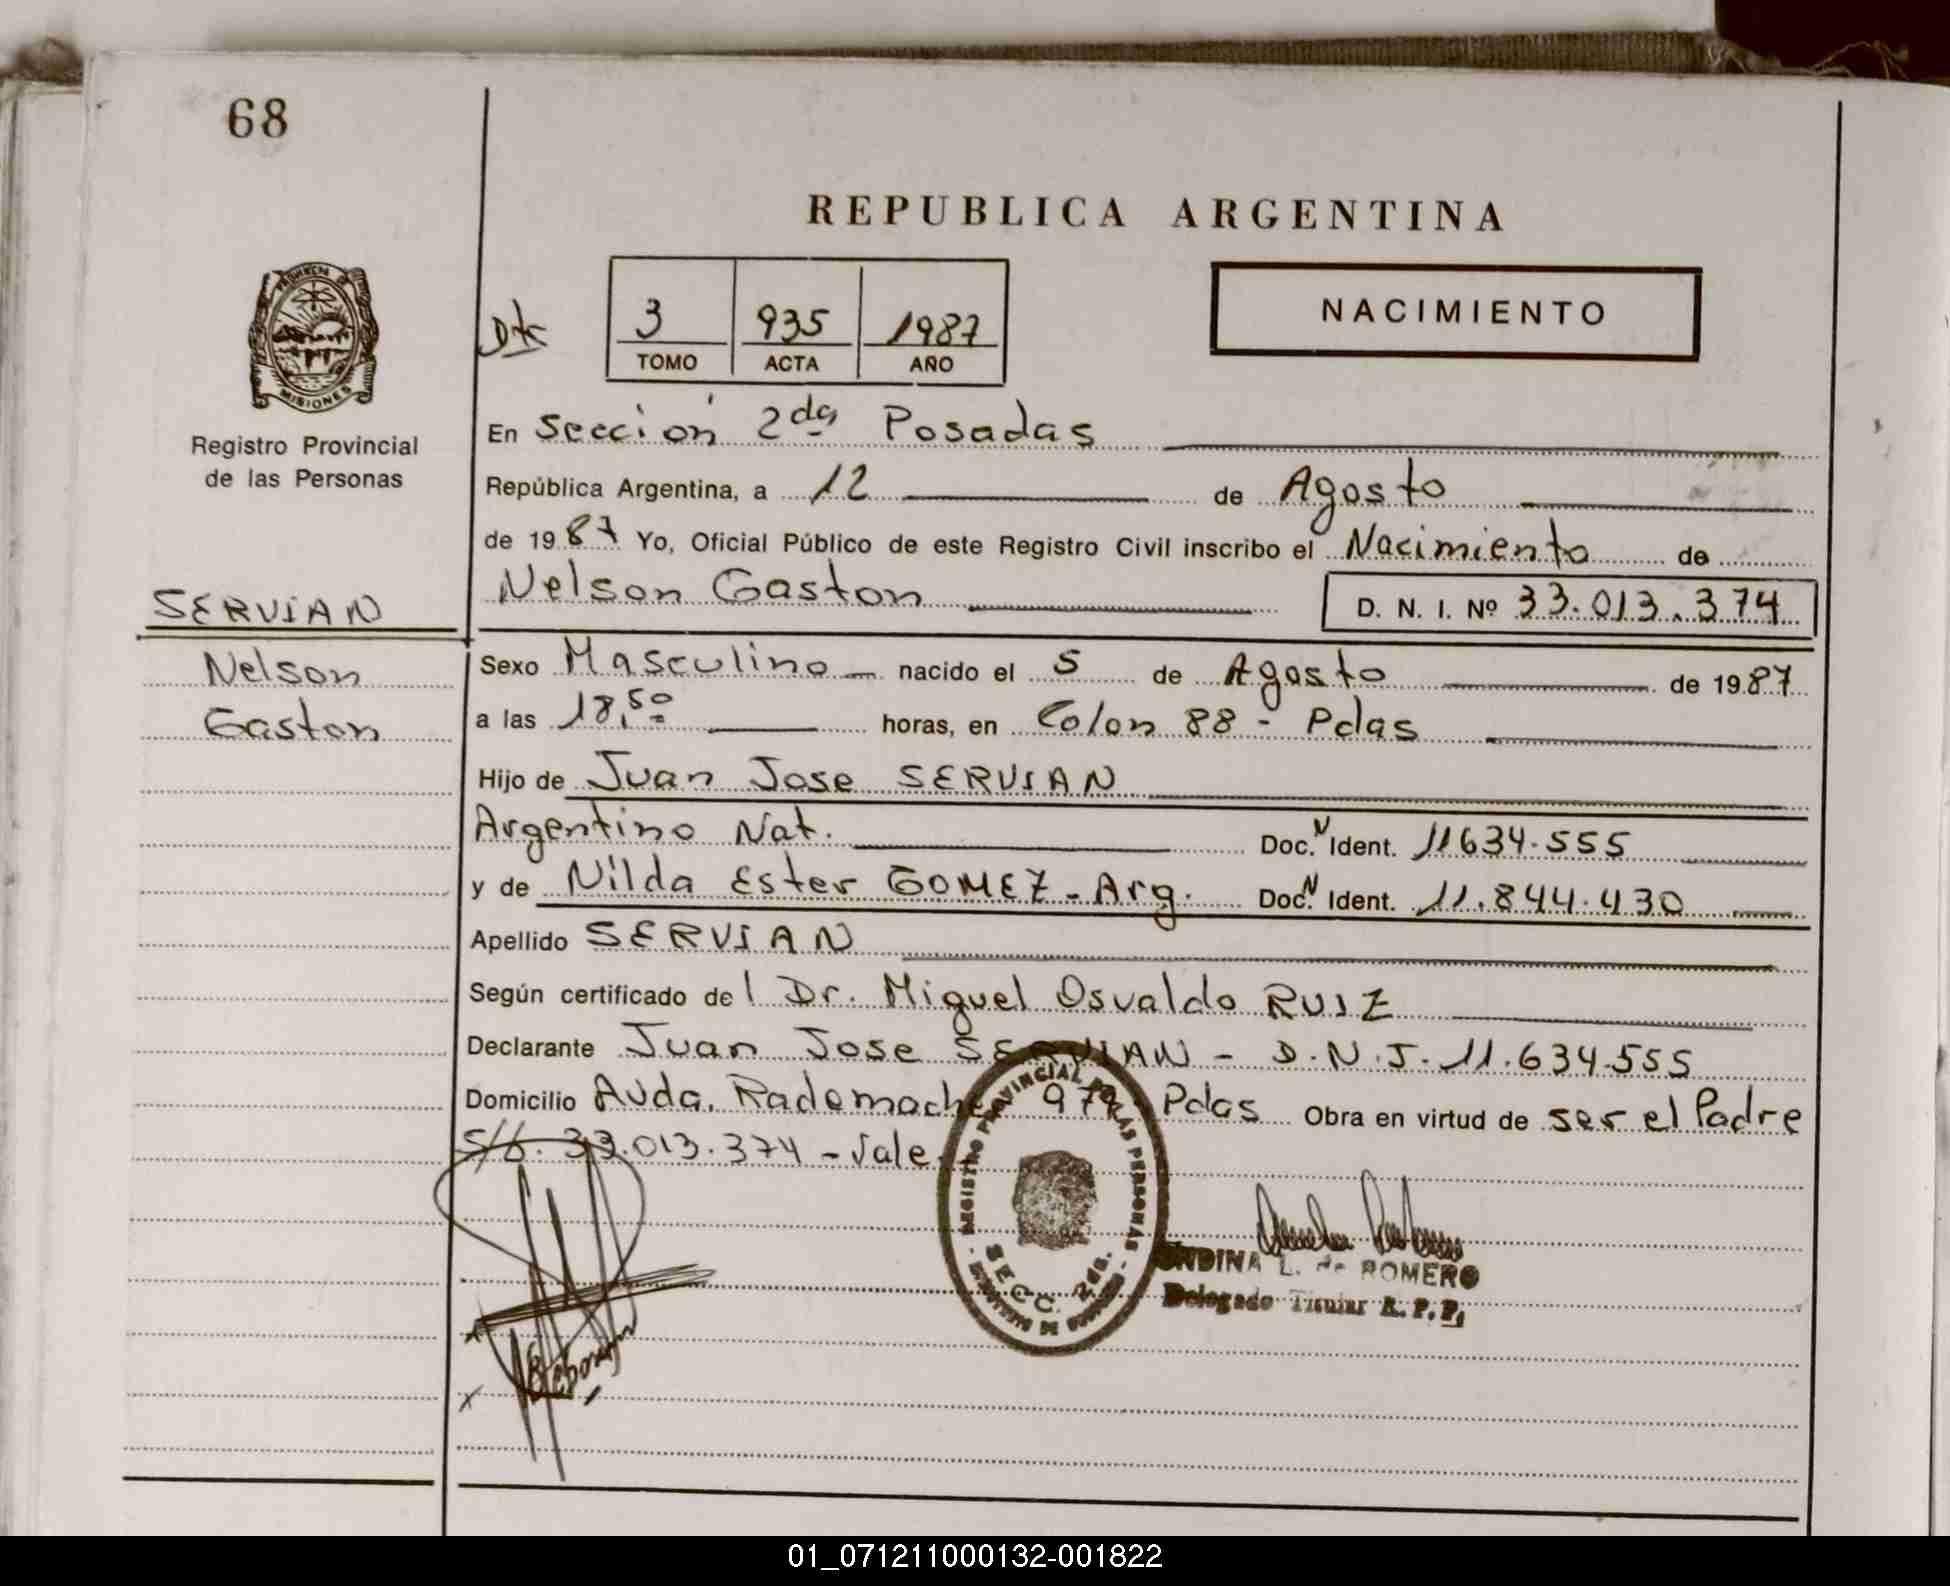 68
REPUBLICA ARGENTINA
PROVINCIA DE
MISIONES
Registro Provincial
de las Personas
3 935 1987
TOMO ACTA AÑO
NACIMIENTO
En Sección 2da Posadas
República Argentina, a 12 de Agosto
de 1987 Yo, Oficial Público de este Registro Civil inscribo el Nacimiento de
Nelson Gaston D. N. I. Nº 33.013.374
SERVIAN
Nelson
Gaston
Sexo Masculino nacido el 5 de Agosto de 1987
a las 18,50 horas, en Colon 88 - Pdas
Hijo de Juan Jose SERVIAN
Argentino Nat. Doc. N Ident. 11634.555
y de Nilda Ester GOMEZ - Arg. Doc. N Ident. 11.844.430
Apellido SERVIAN
Según certificado del Dr. Miguel Osvaldo RUIZ
Declarante Juan Jose SERVIAN - D.N.I. 11.634.555
Domicilio Avda. Rademacher 979 Pdas Obra en virtud de ser el Padre
S/b. 33.013.374 - Vale.
REGISTRO PROVINCIAL DE LAS PERSONAS
SECC. 2da.
ONDINA L. de ROMERO
Delegado Titular R. P. P.
01_071211000132-001822